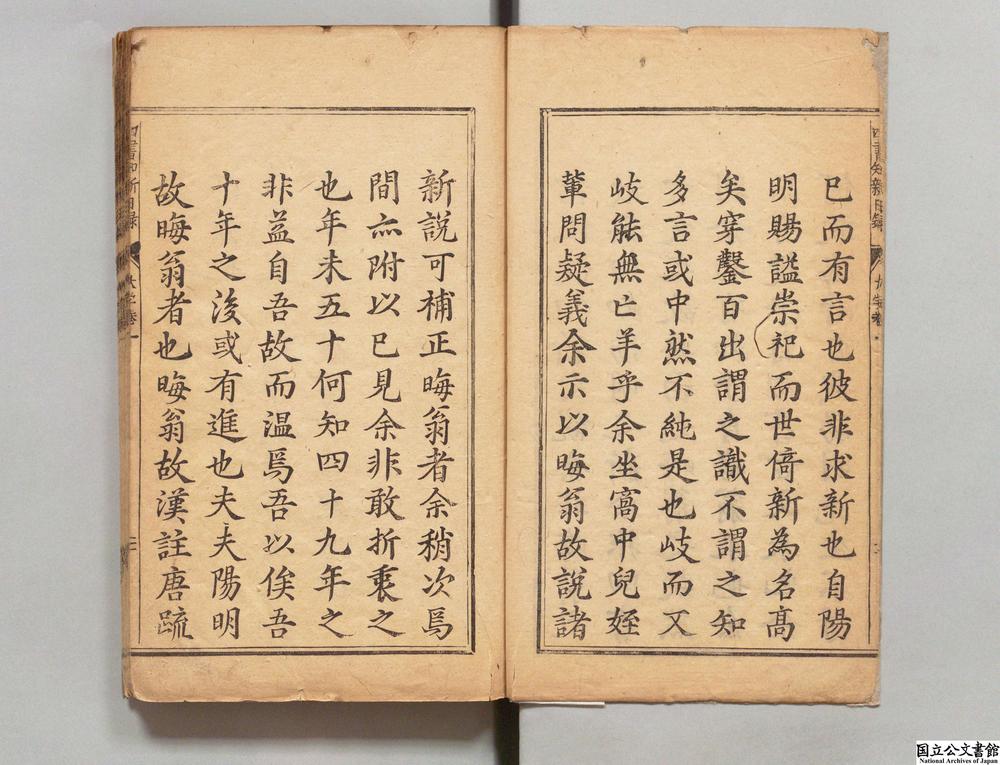 四書知新日録 大学卷一
已而有言也彼非求新也自陽
明賜謚崇祀而世倚新為名髙
矣穿鑿百出謂之識不謂之知
多言或中然不純是也岐而又
岐能無亡羊乎余坐窩中兒姪
軰問疑義余示以晦翁故說諸
新說可補正晦翁者余稍次焉
間亦附以已見余非敢折衷之
也年未五十何知四十九年之
非益自吾故而温焉吾以俟吾
十年之後或有進也夫夫陽明
故晦翁者也晦翁故漢註唐疏
四書知新日録 大学卷一 二
国立公文書館
National Archives of Japan